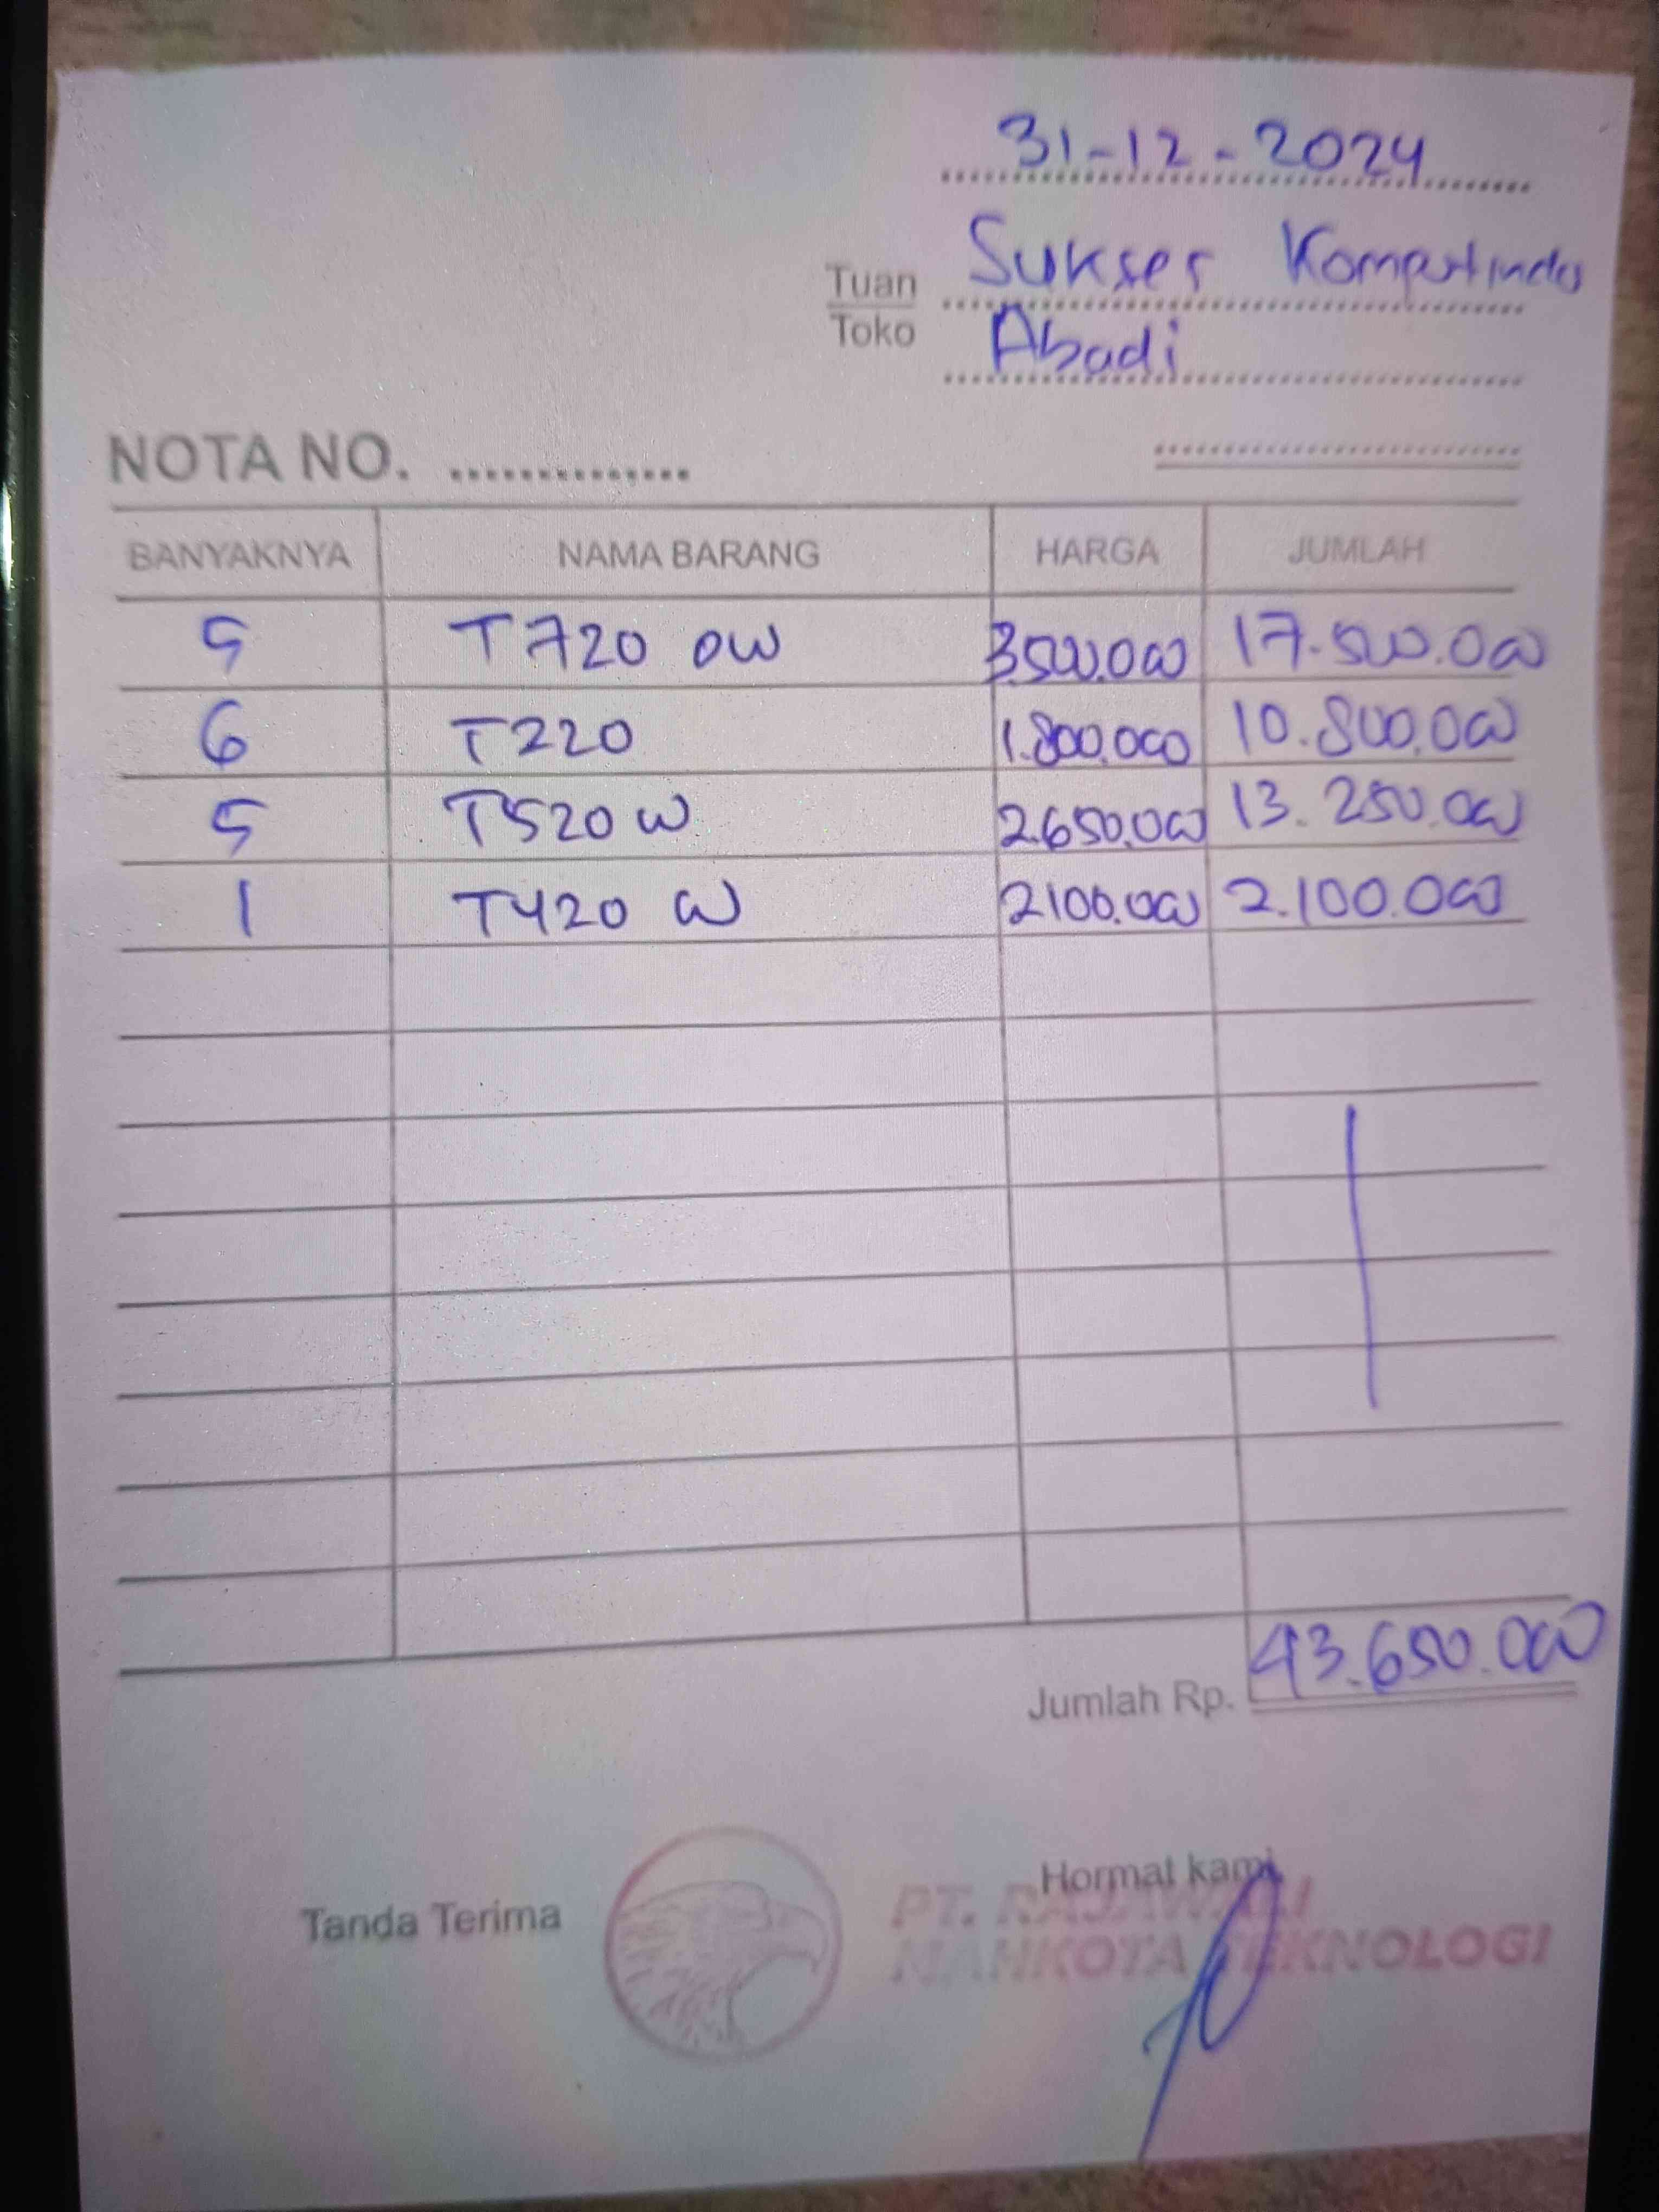 31-12-2024
Tuan Sukses Komputindo
Toko Abadi
NOTA NO. ..............
BANYAKNYA NAMA BARANG HARGA JUMLAH
5 T720 DW 3.500.000 17.500.000
6 T220 1.800.000 10.800.000
5 T520 W 2.650.000 13.250.000
1 T420 W 2.100.000 2.100.000
Jumlah Rp. 43.650.000
Tanda Terima
Hormat kami,
PT. RAJAWALI
MAHKOTA TEKNOLOGI